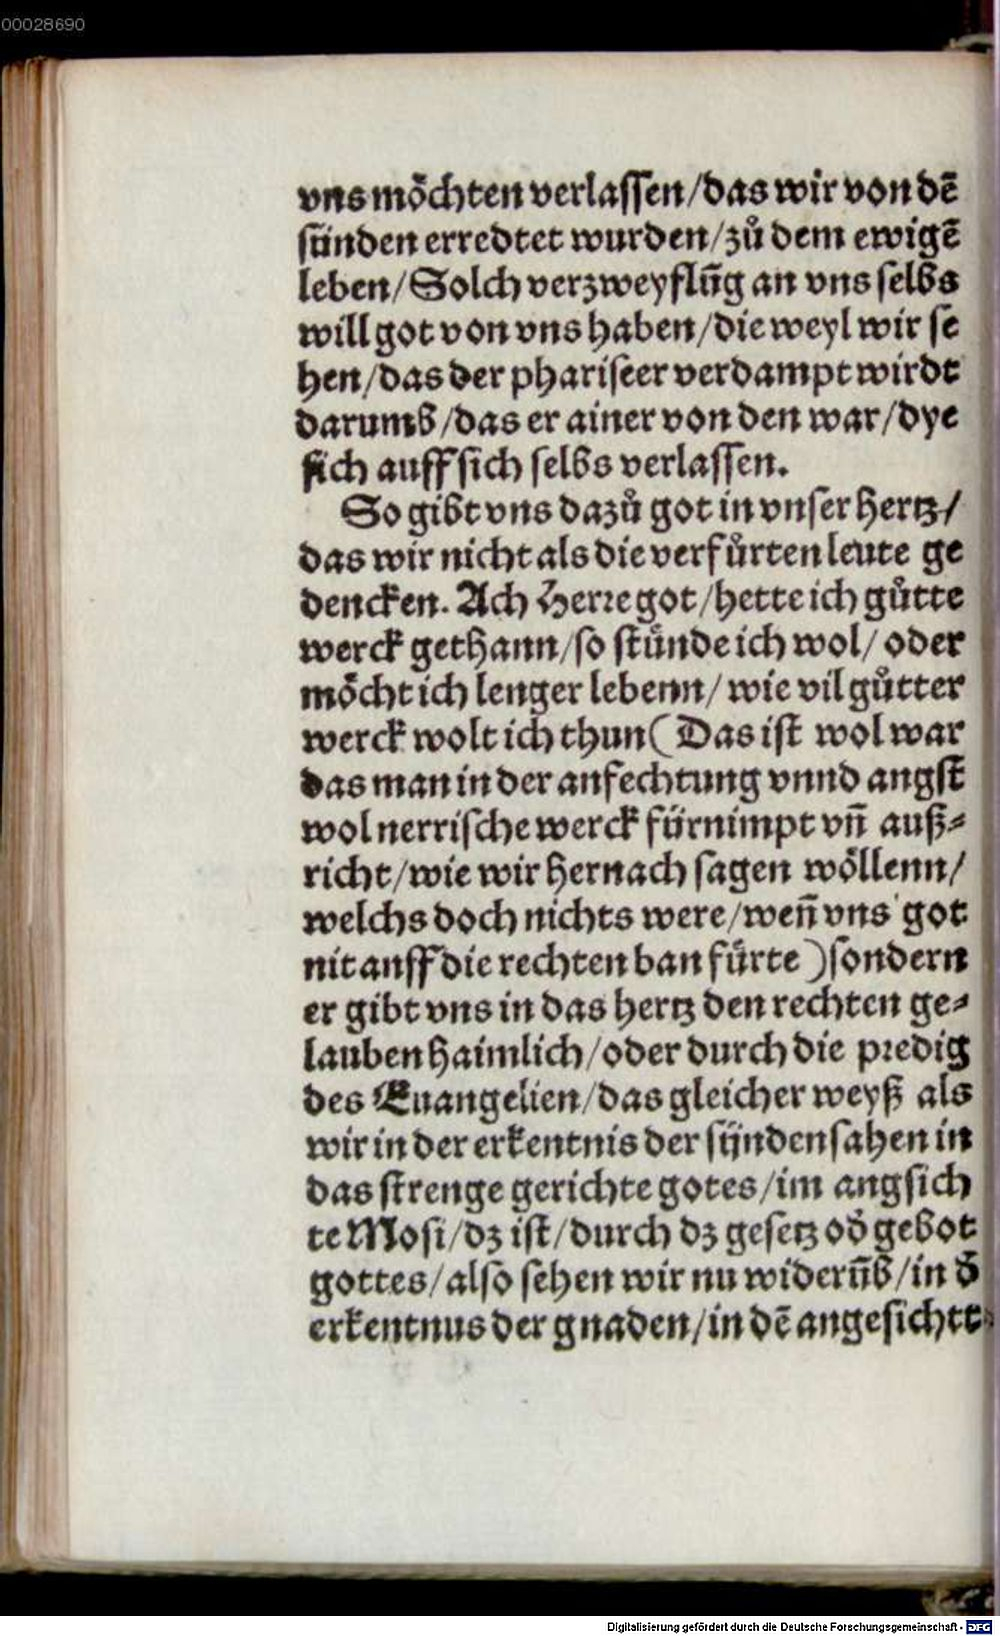 00028690
vns möchten verlassen/das wir von dẽ
sünden erredtet wurden/zů dem ewigẽ
leben/Solch verzweyflũg an vns selbs
will got von vns haben/die weyl wir se
hen/das der phariseer verdampt wirdt
darumb/das er ainer von den war/dye
sich auff sich selbs verlassen.
So gibt vns dazů got in vnser hertz/
das wir nicht als die verfůrten leute ge
dencken. Ach Herre got/hette ich gůtte
werck gethann/so stünde ich wol/ oder
möcht ich lenger lebenn/ wie vil gůtter
werck wolt ich thun( Das ist wol war
das man in der anfechtung vnnd angst
wol nerrische werck fürnimpt vñ auß⸗
richt/wie wir hernach sagen wöllenn/
welchs doch nichts were/weñ vns got
nit anff die rechten ban fůrte )sondern
er gibt vns in das hertz den rechten ge⸗
lauben haimlich/oder durch die predig
des Euangelien/das gleicher weyß als
wir in der erkentnis der sünden sahen in
das strenge gerichte gotes/im angsich
te Mosi/dz ist/durch dz gesetz od̕ gebot
gottes/also sehen wir nu widerũb/in d̕
erkentnus der gnaden/in dẽ angesichtt
Digitalisierung gefördert durch die Deutsche Forschungsgemeinschaft - DFG